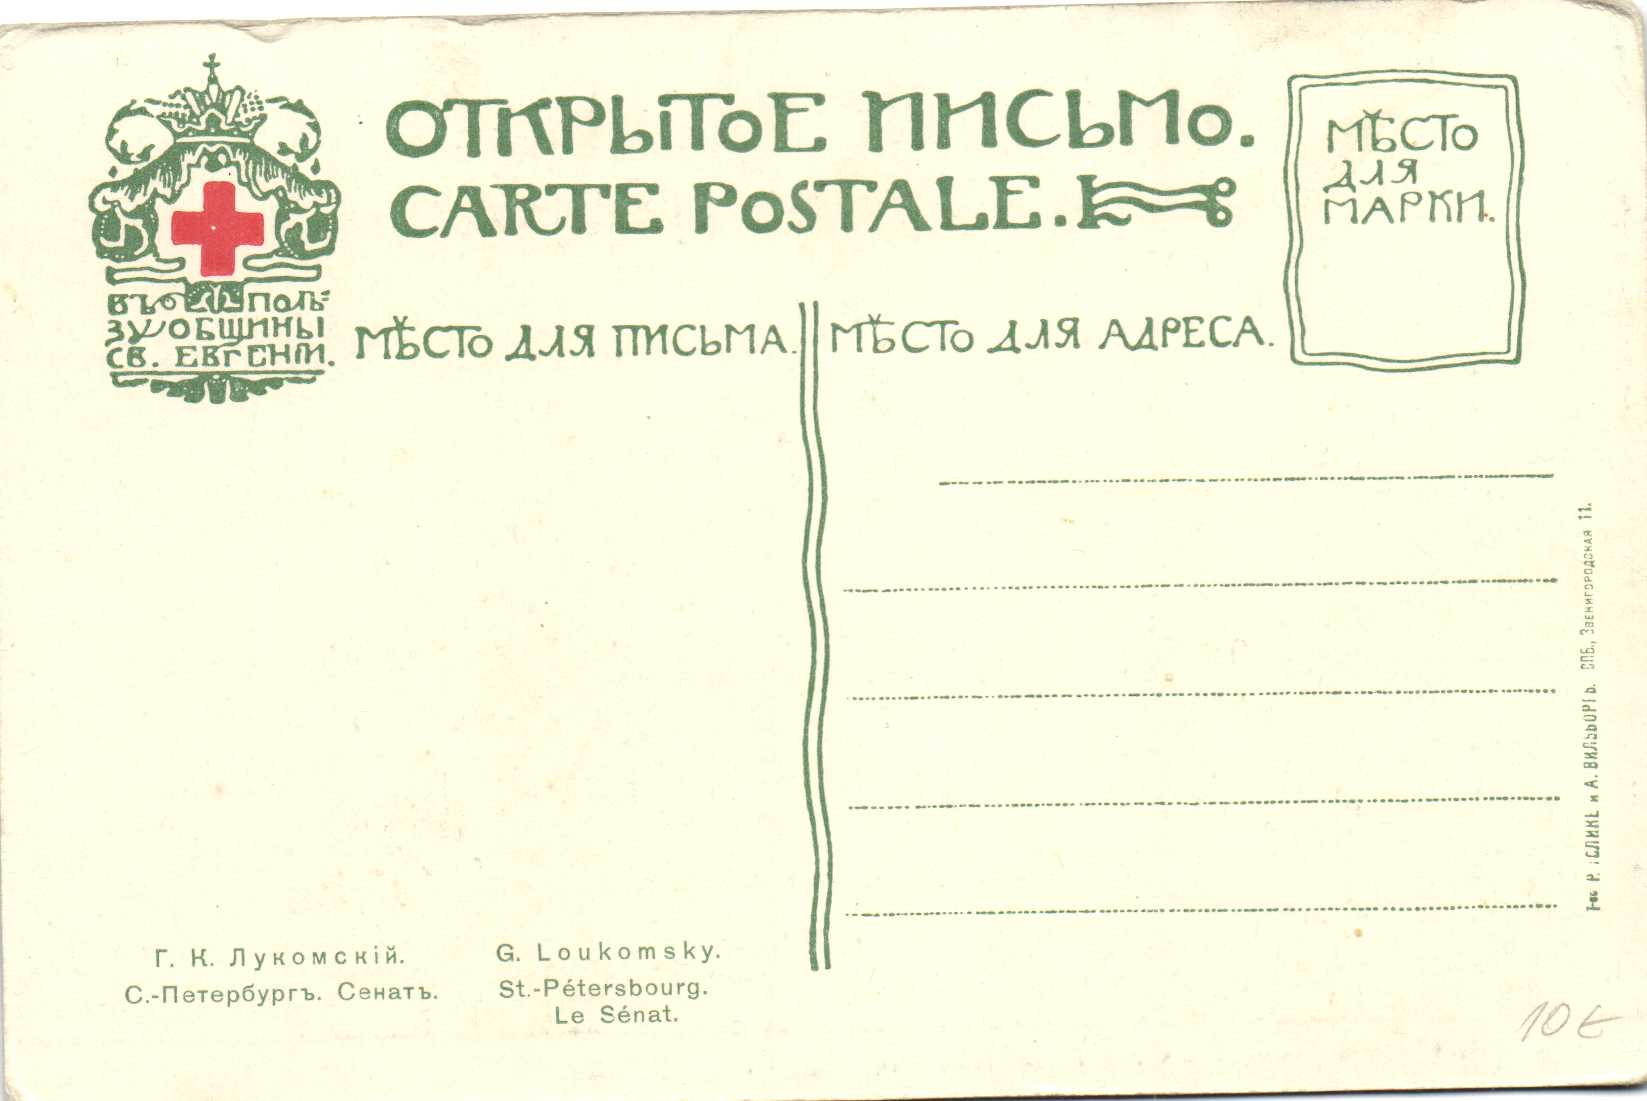 ОТКРЫТОЕ ПИСЬМО.
CARTE POSTALE.
МѢСТО
ДЛЯ
МАРКИ.
ВЪ ПОЛЬ=
ЗУ ОБЩИНЫ
СВ. ЕВГЕНІИ.
МѢСТО ДЛЯ ПИСЬМА.
МѢСТО ДЛЯ АДРЕСА.
Т-во Р. ГОЛИКЕ и А. ВИЛЬБОРГЪ. СПБ., Звенигородская 11.
Г. К. Лукомскій.
С.-Петербургъ. Сенатъ.
G. Loukomsky.
St.-Pétersbourg.
Le Sénat.
10€